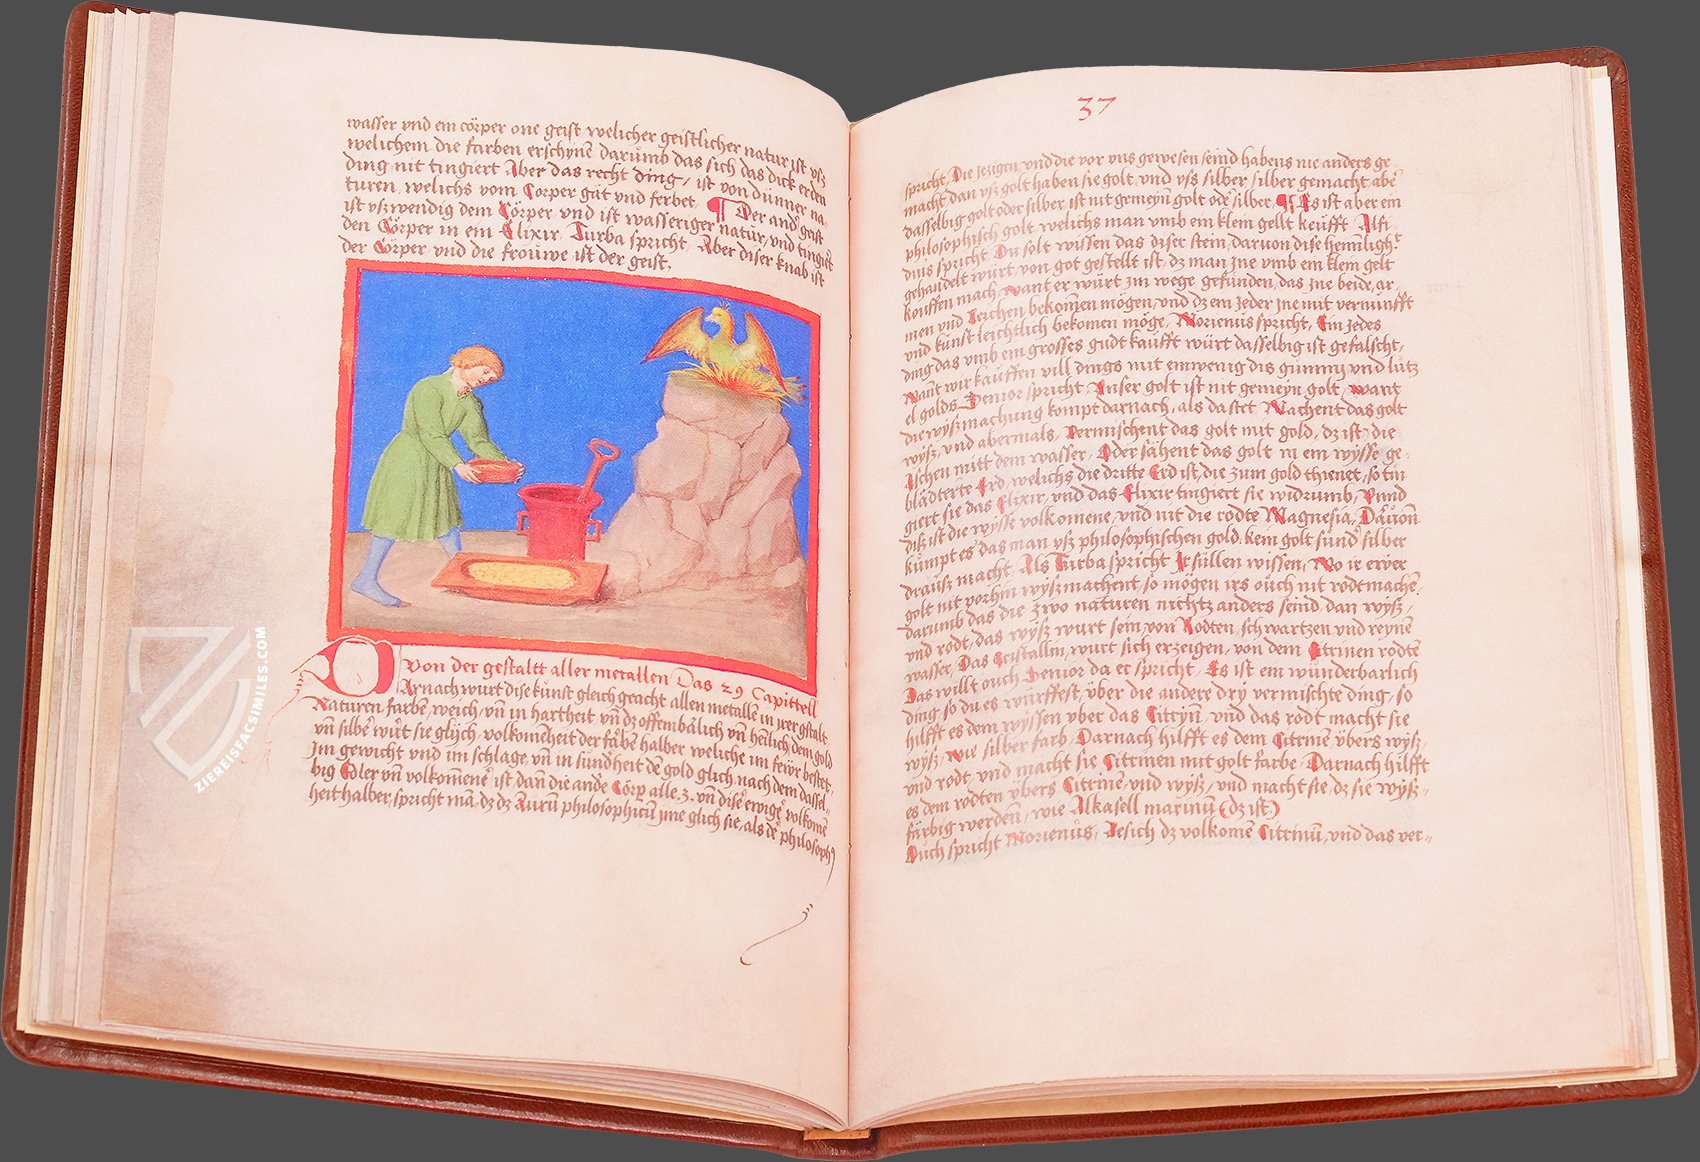 wasser vnd ein cörper one geist welicher geistlicher natur ist vsz
welichem die farben erschynen darumb das sich das dick erden
ding nit tingiert Aber das recht ding / ist von dünner na
turen welichs vom Corper gat vnd ferbet ¶ Der ander geist
ist vszwendig dem Cörper vnd ist wasseriger natur / vnd tingiert
den Cörper in ein Elixir / Turba spricht / Aber diser knab ist
der Cörper vnd die frouwe ist der geist,
Von der gestaltt aller metallen Das 29 Capittell
Darnach wurt dise kunst gleich geacht allen metallen in irer gstalt
Naturen farben / weich / vn in hartheit vn dz offembälich vn heilich dem gold
vn silber würt sie glych / volkomeheit der farben halber weliche im feür bestet,
Im gewicht vnd im schlage vn in sundheit de gold glich nach dem dassel-
big Edler vn volkomene ist dan die ande Cörp alle. 3. vn diser ewige volkome
heit halber spricht man dz dz Aurum philosophicum ime glich sie, als de philosoph
37
spricht, Die jezigen vnd die vor vns gewesen seind habens nie anders ge-
macht dan vsz golt haben sie golt vnd vss silber silber gemacht aber
dasselbig golt oder silber ist nit gemeyn golt oder silber ¶ Es ist aber ein
philosophisch golt welichs man vmb ein klein gellt keufft Alfi
dius spricht Du solt wissen das diser stein / daruon dise heimligh
gehandelt würt von got gestellt ist dz man jne vmb ein klein gelt
kouffen mach / want er würt im wege gefunden, das jne beide, ar
men vnd Reichen bekomen mögen / vnd dz ein jeder jne mit vernunfft
vnd kunst leichtlich bekomen möge, Morienus spricht, Ein jedes
ding das vmb ein grosses gudt kaufft würt dasselbig ist gefalscht,
Want wir kauffen vill dings mit einwenig dis gummj vnd lutz
el golds Senior spricht Vnser golt ist nit gemeyn golt, want
die wyszmachung kompt darnach, als da stet Machent das golt
wysz, vnd abermals, Vermischent das golt mit gold, dz ist die
Eschen mitt dem wasser, Oder sähent das golt in ein wysse ge-
blädterte Erd, welichs die dritte Erd ist, die zum gold thienet, so tin
giert sie das Elixir, vnd das Elixir tingiert sie widrumb, Vnnd
disz ist die wysse volkomene vnd nit die rodte Magnesia, Dauon
kumpt es das man vsz philosophischen gold kein golt sund silber
drausz macht Als Turba spricht Ir süllen wissen, Wo ir ewer
golt nit vorhin wysz machent, so mögen irs ouch nit rodt machen,
darumb das die zwo naturen nichtz anders seind dan wysz,
vnd rodt, das wysz wurt sein von Rodten, schwartzen vnd reynen
wasser, Das Cristallin, wurt sich erzeigen, von dem Citrinen rodten
Das willt ouch Senior da er spricht, Es ist ein wunderbarlich
ding so du es würffest, über die andere dry vermischte ding, so
hilfft es dem wyssen vber das Citryn, vnd das rodt macht sie
wysz, wie silber farb, Darnach hilfft es dem Citrinen übers wysz,
vnd rodt vnd macht sie Citrinen mit golt farbe, Darnach hilfft
es dem rodten übers Citrinen vnd wysz, vnd macht sie, dz sie wysz-
färbig werden, wie Alkasell marinu (dz ist)
Ouch spricht Morienus, Besich dz volkomen Citrinu, vnd das ver-
ZIEREISFACSIMILES.COM